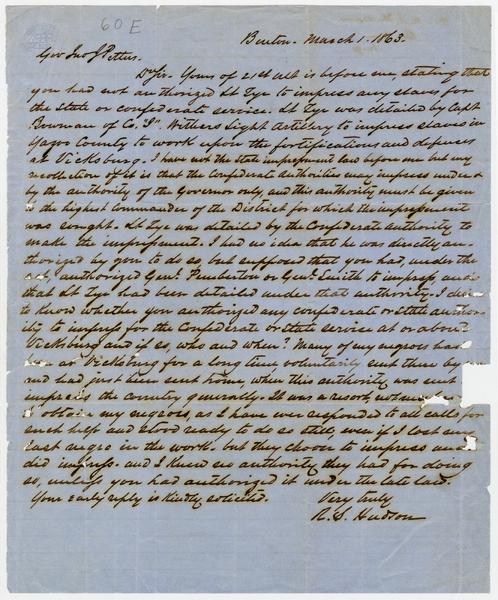 60 E
Benton. March 1. 1863.
Gov Jno J Pettus.
Dr Sir. Yours of 21st ult is before me, stating that
you had not authorized Lt Tye to impress any slaves for
the State or confederate service. Lt Tye was detailed by Capt
Bowman of Co. "I". Withers Light Artillery to impress slaves in
Yazoo County to work upon the fortifications and defences
at Vicksburg. I have not the State impressment law before me but my
recollection of it is that the Confederate authorities may impress under &
by the authority of the Governor only, and this authority must be given
to the highest Commander of the District for which the impressment
was sought. Lt Tye was detailed by the Confederate authority to
make the impressment. I had no idea that he was directly au-
thorized by you to do so but supposed that you had, under the
act, authorized Genl. Pemberton or Genl. Smith to impress and
that Lt Tye had been detailed under that authority. I desire
to know whether you authorized any confederate or State author-
ity to impress for the Confederate or State service at or about
Vicksburg and if so, who and when? Many of my negroes had
been at Vicksburg for a long time, voluntarily sent there by me
and had just been sent home, when this authority was sent
impress the country generally. It was a resort, not
obtain my negroes, as I have ever responded to all calls for
such help and stood ready to do so still, even if I lost every
last negro in the work. but they choose to impress and
did impress. and I knew no authority they had for doing
so, unless you had authorized it under the late law.
Your early reply is kindly solicited. Very truly
R. S. Hudson